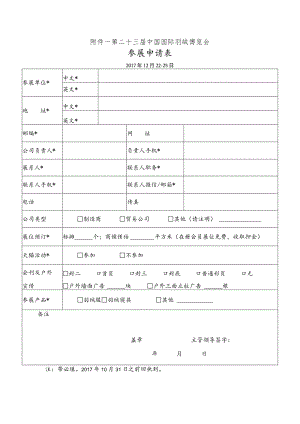 附件一第二十三届中国国际羽绒博览会
参展申请表
2017年12月22-25日
参展单位* 中文*
英文*
地 址* 中文*
英文*
邮编* 网 址
公司负责人* 负责人手机*
联系人* 联系人职务*
联系人手机* 联系人微信/邮箱*
电话 传真
公司类型 □制造商 □贸易公司 □其他(请注明)
展位预订* 标摊 个;商摊保估 平方米(在册会员展位免费,收取押金)
大猫活动* □参加 □不参加
会刊及户外宣传 □封二 □首页 □封三 □封底 □普通彩页 □无
□户外墙面广告 块 □户外三面立柱广告 块
参展产品* □羽绒服 □羽绒寝具 □其他
备注
盖章 主管领导签字:
年 月 日
注:带必填,2017年10月31日之前回执到。